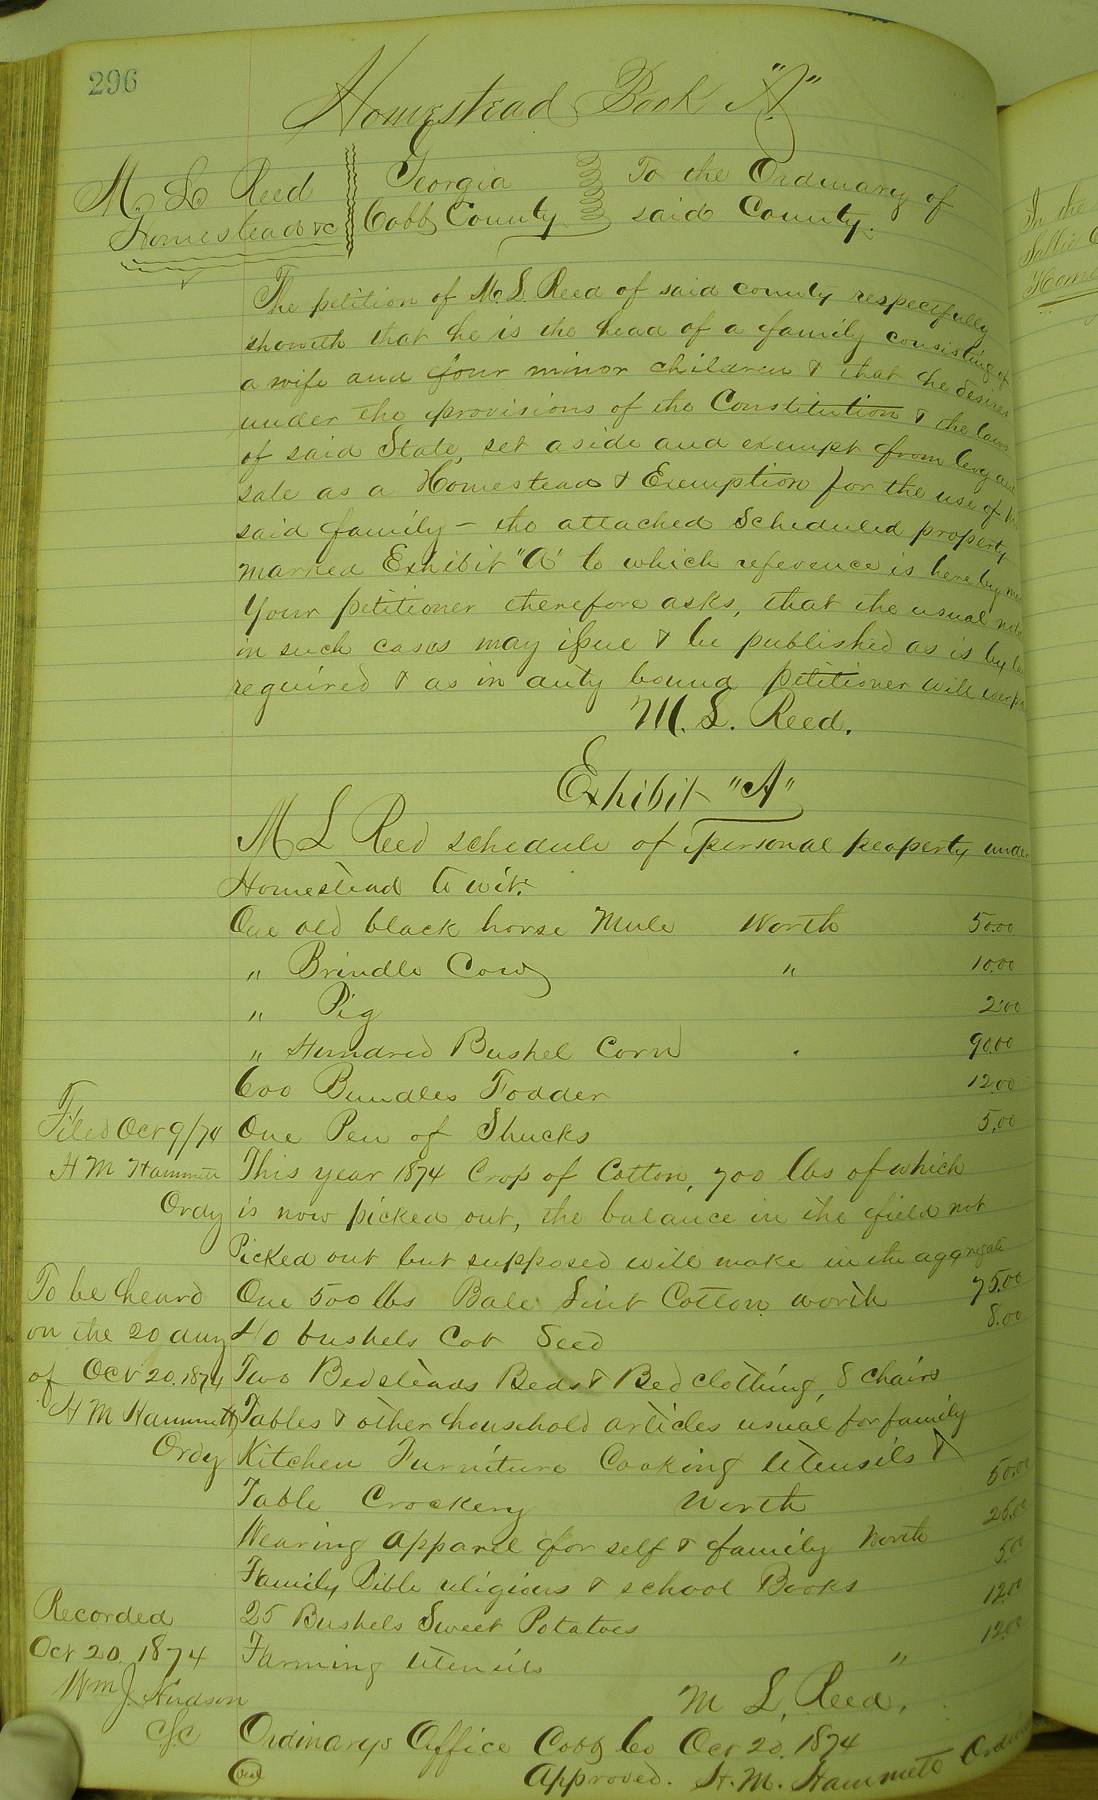 296
Homestead Book "A"
M. L. Reed
Homestead &c
Georgia
Cobb County
To the Ordinary of
said County.
The petition of M. L. Reed of said county respectfully
showeth that he is the head of a family consisting of
a wife and four minor children & that he desires
under the provisions of the Constitution & the laws
of said State, set aside and exempt from levy and
sale as a Homestead & Exemption for the use of his
said family – the attached Scheduled property
marked Exhibit "A" to which reference is hereby
Your petitioner therefore asks, that the usual
in such cases may issue & be published as is by law
required & as in duty bound petitioner will
M. L. Reed.
Exhibit "A"
M L Reed schedule of personal property under
Homestead to wit:
One old black horse Mule Worth 50.00
" Brindle Cow " 10.00
" Pig 2.00
" Hundred Bushel Corn 90.00
600 Bundles Fodder 12.00
One Pen of Shucks 5.00
This year 1874 Crop of Cotton, 700 lbs of which
is now picked out, the balance in the field not
Picked out but supposed will make in the aggregate
One 500 lbs Bale Lint Cotton worth 75.00
40 bushels Cot Seed 8.00
Two Bedsteads Beds & Bed clothing, 8 chairs
Tables & other household articles usual for family
Kitchen Furniture Cooking Utensils &
Table Crockery Worth 50.00
Wearing Apparel for self & family Worth 25.00
Family Bible religious & school Books 5.00
25 Bushels Sweet Potatoes 12.00
Farming Utensils " 12.00
M L, Reed.
Ordinarys Office Cobb Co Oct 20, 1874
Approved. H. M. Hammett Ordinary
Seal
Filed Oct 9/74
H M Hammett
Ordy
To be heard
on the 20 day
of Oct 20. 1874
H M Hammett
Ordy
Recorded
Oct 20, 1874
Wm J. Hudson
CSC
In the
Sallie
Home